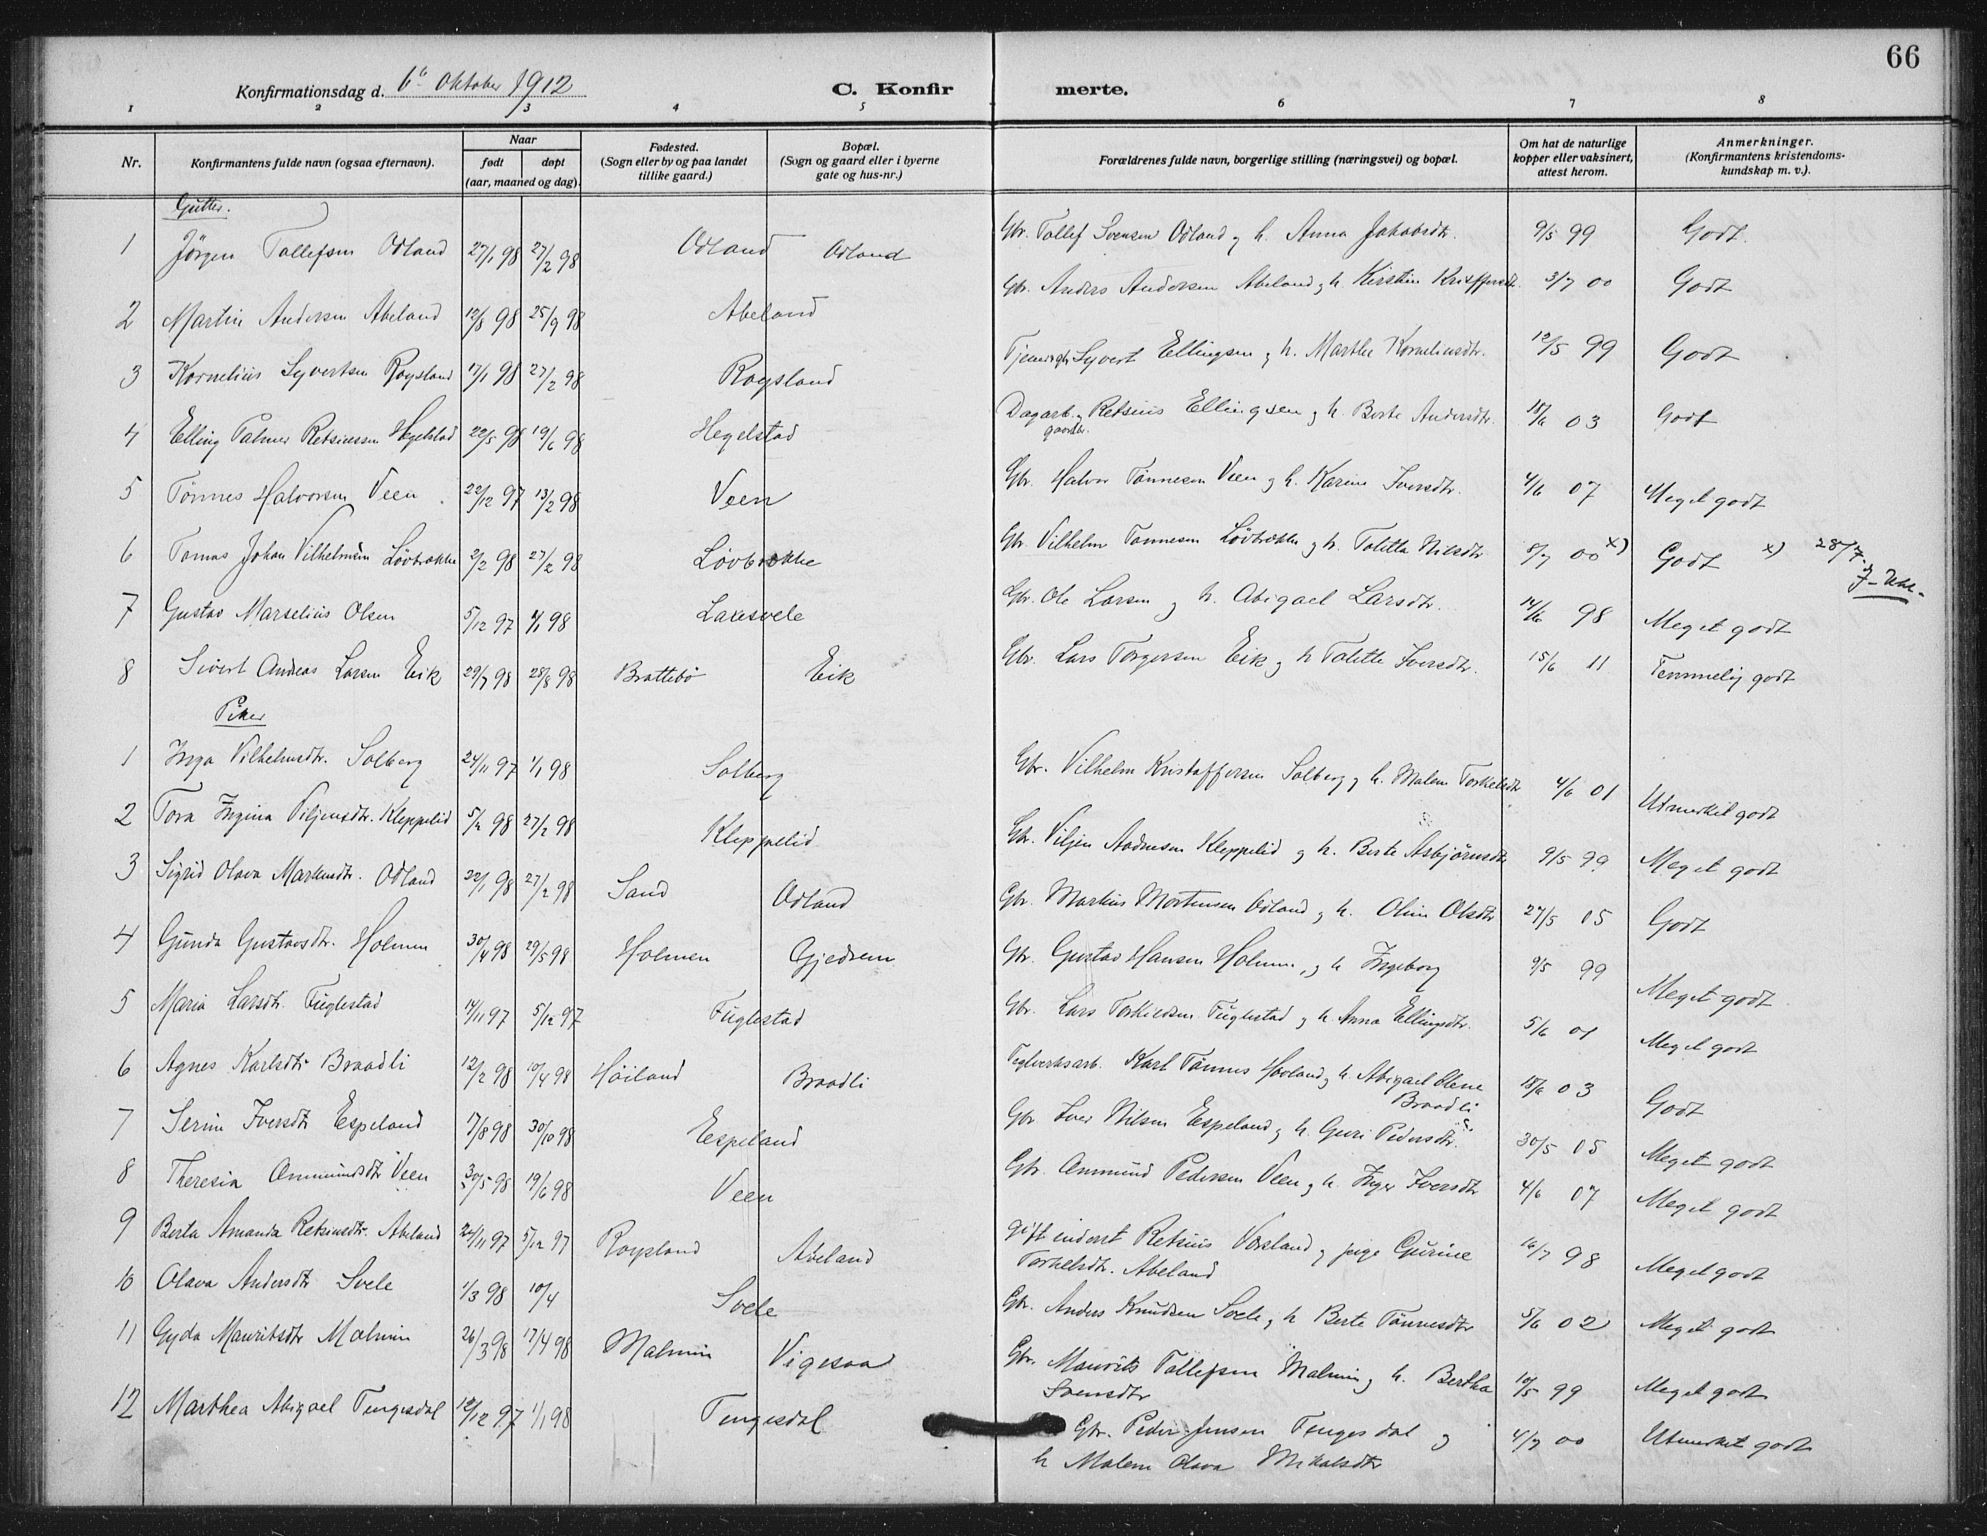 66
Konfirmationsdag d. 6te Oktober 1912
C. Konfirmerte.
1 2 3 4 5 6 7 8
Nr. | Konfirmantens fulde navn (ogsaa efternavn). | Naar født døpt (aar, maaned og dag). | Fødested. (Sogn eller by og paa landet tillike gaard.) | Bopæl. (Sogn og gaard eller i byerne gate og hus-nr.) | Forældrenes fulde navn, borgerlige stilling (næringsvei) og bopæl. | Om hat de naturlige kopper eller vaksinert, attest herom. | Anmerkninger. (Konfirmantens kristendomskundskap m. v.).
Gutter.
1 Jörgen Tollefsen Odland 27/1 98 27/2 98 Odland Odland Gbr. Tollef Svensen Odland og h. Anna Jakobsdtr. 9/5 99 Godt.
2 Martin Andersen Abeland 12/8 98 25/9 98 Abeland Gbr. Anders Andersen Abeland og h. Kirstin Kristoffersdt. 3/7 00 Godt
3 Kornelius Syvertsen Røysland 17/1 98 27/2 98 Røysland Syvert Ellingsen og h. Marthe Korneliusdtr. 12/5 99 Godt
4 Elling Palmer Retsiussen Hegelstad 22/5 98 19/6 98 Hegelstad Dagarb. og gaardbr. Retsius Ellingsen og h. Berte Andersdtr. 18/6 03 Godt
5 Tönnes Halvorsen Veen 22/12 97 13/2 98 Veen Gbr. Halvor Tönnesen Veen og h. Karine Iversdtr. 4/6 07 Meget godt
6 Tomas Johan Vilhelmsen Lövbrække 2/2 98 27/2 98 Lövbrække Gbr. Vilhelm Tönnesen Lövbrække og h. Talette Nilsdtr. 8/7 00 x) Godt x) 28/7
7 Gustav Marselius Olsen 5/12 97 1/1 98 Laksvele Gbr. Ole Larsen og h. Abigael Larsdtr. 14/6 98 Meget godt
8 Sivert Andreas Larsen Eik 29/7 98 28/8 98 Brattebö Eik Gbr. Lars Torgersen Eik og h Talette Iversdtr. 15/6 11 Temmelig godt
Piker
1 Inga Vilhelmsdtr. Solberg 24/11 97 1/1 98 Solberg Gbr. Vilhelm Kristoffersen Solberg og h. Malene Torkelsdtr 4/6 01 Utmerket godt
2 Tora Ingina Viljensdtr. Kleppelid 5/2 98 27/2 98 Kleppelid Gbr. Viljen Aadnesen Kleppelid og h. Berte Asbjörnsdtr 9/5 99 Meget godt
3 Sigrid Olava Markusdtr. Odland 22/1 98 27/2 98 Sand Odland Gbr. Markus Mortensen Odland og h. Oline Olsdtr 27/5 05 Godt
4 Gunda Gustavsdtr. Holmen 30/4 98 29/5 98 Holmen Gjedrem Gbr. Gustav Hansen Holmen, og h Ingeborg 9/5 99 Meget godt
5 Maria Larsdtr. Fuglestad 14/11 97 5/12 97 Fuglestad Gbr. Lars Torkildsen Fuglestad og h Anna Ellingsdtr. 5/6 01 Meget godt
6 Agnes Karlsdtr Braadli 12/2 98 10/4 98 Höiland Braadli Teglverksarb. Karl Tönnes Hovland og h. Abigael Olene Braadli 18/6 03 Godt
7 Serine Iversdtr Espeland 17/8 98 30/10 98 Espeland Gbr. Iver Nilsen Espeland og h. Guri Pedersdtr. 30/5 05 Meget godt
8 Theresia Ommundsdtr Veen 30/5 98 19/6 98 Veen Gbr. Ommund Pedersen Veen og h. Inger Iversdtr 4/6 07 Meget godt
9 Berta Amanda Retsiusdtr. Abeland 24/11 97 5/12 97 Røysland Abeland gift inderst Retsius Røsland og pige Gurine Torkelsdtr. Abeland 16/7 98 Meget godt
10 Olava Andersdtr Svele 1/3 98 10/4 Svele Gbr. Anders Knudsen Svele og h Berte Tönnesdtr 5/6 02 Meget godt
11 Gyda Mauritsdtr Malmin 26/3 98 17/4 98 Malmin Vigesaa Gbr. Maurits Tollefsen Malmin og h. Bertha Svensdtr 10/5 99 Meget godt
12 Marthea Abigael Tengesdal 12/12 97 1/1 98 Tengesdal Gbr. Peder Jensen Tengesdal og h Malene Olava Mikalsdtr 4/7 00 Utmerket godt